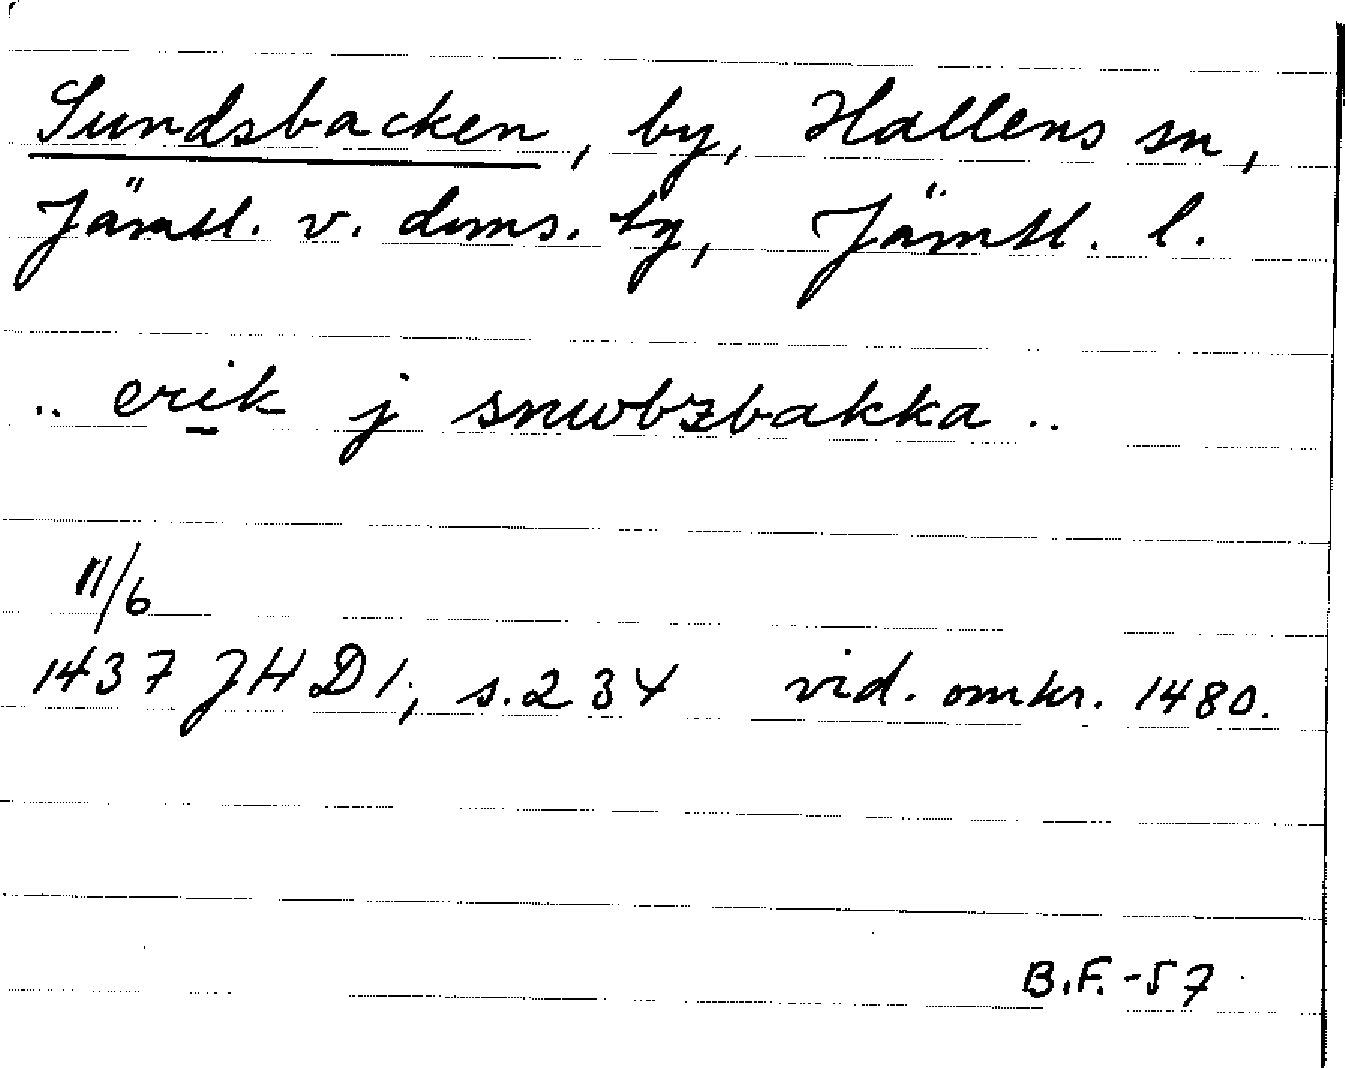 Sundsbacken, by, Hallens sn,
Jämtl. v. doms. tg, Jämtl. l.
.. erik j snwbzbakka ..
11/6
1437 JHD 1, s. 234 vid. omkr. 1480.
B.F. -57